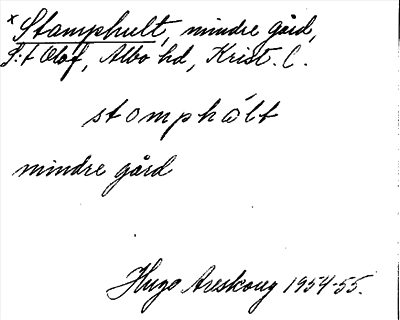 x Stamphult, mindre gård,
S:t Olof, Albo hd, Krist. C.
stomphált
mindre gård
Hugo Areskoug 1954-55.